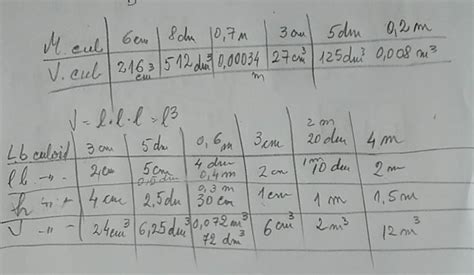 M. cub | 6 cm | 8 dm | 0,7 m | 3 cm | 5 dm | 0,2 m
V. cub | 216 cm³ | 512 dm³ | 0,00034 m | 27 cm³ | 125 dm³ | 0,008 m³
V = l · l · l = l³
Lb cuboid | 3 cm | 5 dm | 0,6 m | 3 cm | 2 m 20 dm | 4 m
lb -"- | 2 cm | 5 cm | 4 dm 0,4 m | 2 cm | 1 m 10 dm | 2 m
h -"- | 4 cm | 2,5 dm | 0,3 m 30 cm | 1 cm | 1 m | 1,5 m
V -"- | 24 cm³ | 6,25 dm³ | 0,072 m³ 72 dm³ | 6 cm³ | 2 m³ | 12 m³